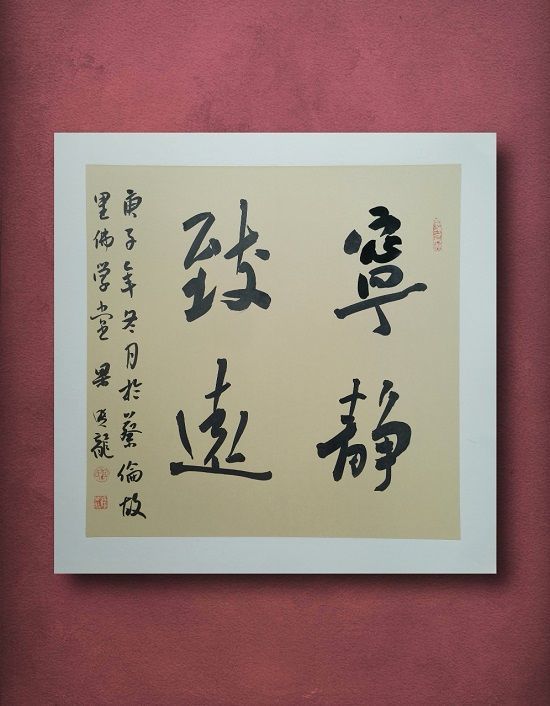 寧靜
致遠
庚子年冬月於蔡倫故
里佛学堂 龍